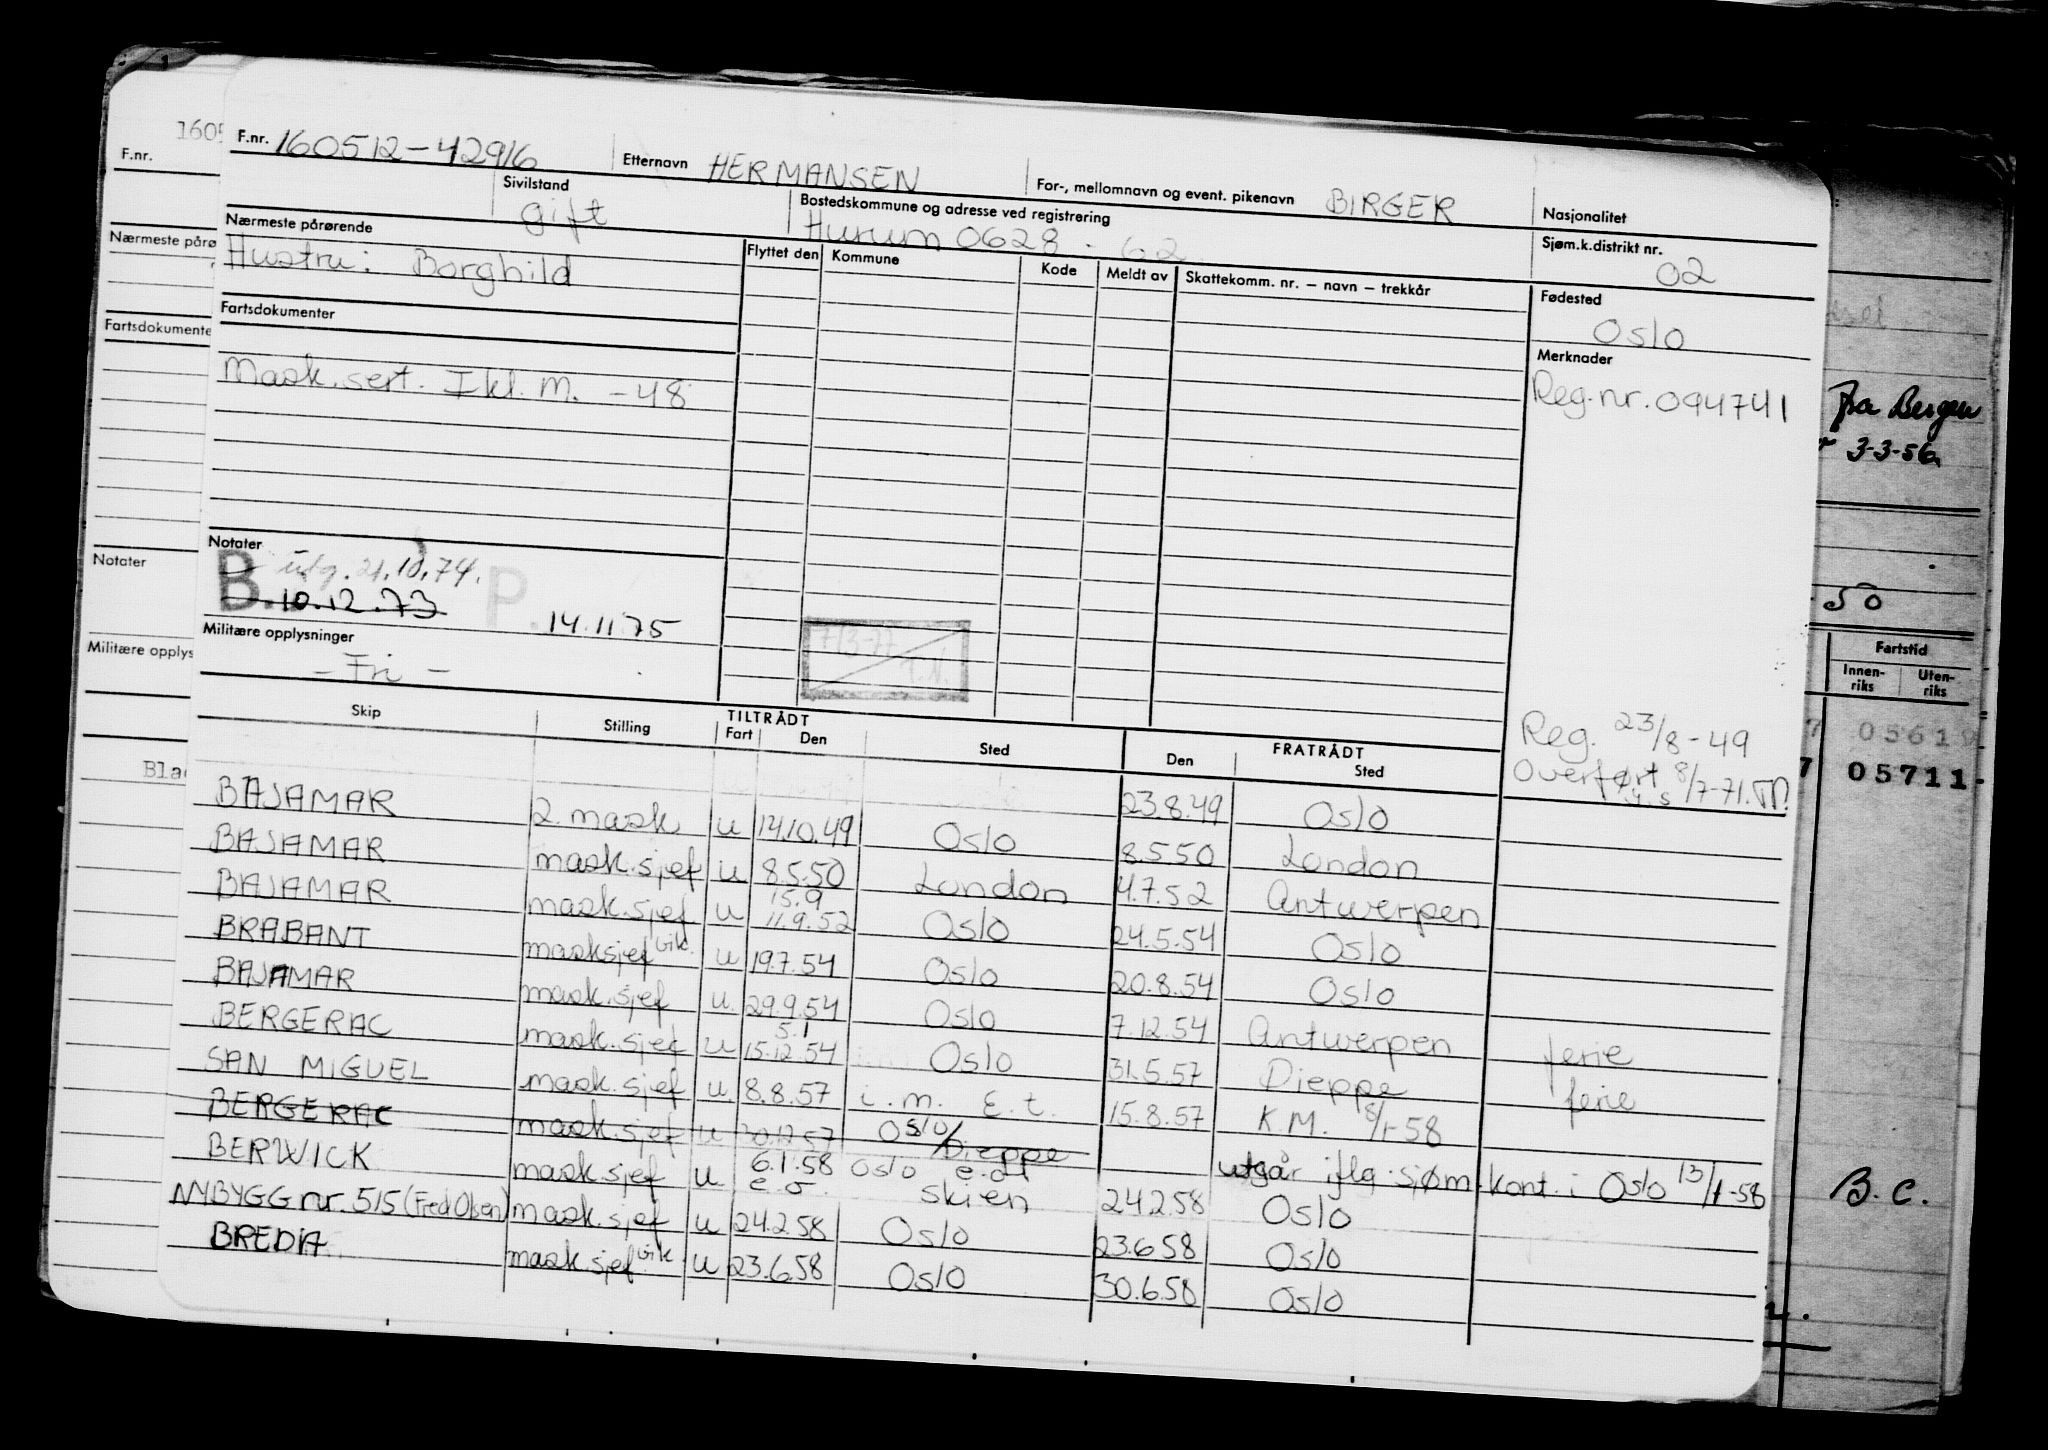 F.nr. 160512-42916 Etternavn HERMANSEN For-, mellomnavn og event. pikenavn BIRGER Nasjonalitet
Sivilstand gift Bostedskommune og adresse ved registrering Hurum 0628 - 62 Sjøm.k.distrikt nr. 02
Nærmeste pårørende Flyttet den Kommune Kode Meldt av Skattekomm. nr. – navn – trekkår Fødested
Hustru: Borghild Oslo
Fartsdokumenter Merknader
Mask.sert. I kl. M. -48 Reg.nr. 094741
Notater
B. utg. 21.10.74.
10.12.73 P. 14.11.75
7/3-77
T.N.
Militære opplysninger
- Fri -
Reg. 23/8-49
Overført 8/7-71.
Skip Stilling TILTRÅDT Fart Den Sted FRATRÅDT Den Sted
23.8.49 Oslo
BAJAMAR 2. mask u 14.10.49 Oslo 8.5.50 London
BAJAMAR mask.sjef u 8.5.50 London 4.7.52 Antwerpen
BAJAMAR mask.sjef u 15.9 11.9.52 Oslo 24.5.54 Oslo
BRABANT masksjef vik. u 19.7.54 Oslo 20.8.54 Oslo
BAJAMAR mask.sjef u. 29.9.54 Oslo 7.12.54 Antwerpen ferie
BERGERAC mask.sjef u 5.1 15.12.54 Oslo 31.5.57 Dieppe ferie
SAN MIGUEL mask.sjef u. 8.8.57 i.m. E.t. 15.8.57 K.M. 8/1-58
BERGERAC mask.sjef u 30.12.57 Oslo/Dieppe utgår iflg. sjøm.kont. i Oslo 13/1-58
BERWICK mask.sjef u. 6.1.58 Oslo e.o. Skien 24.2.58 Oslo
NYBYGG nr. 515 (Fred Olsen) mask.sjef u 24.2.58 Oslo 23.6.58 Oslo
BREDA mask.sjef vik u 23.6.58 Oslo 30.6.58 Oslo
1605
F.nr.
Nærmeste pårø
Fartsdokumente
Notater
Militære opplys
Bla
fra Bergen
3-3-56
50
Fartstid
Innen-
riks
Uten-
riks
7 05619
7 05711-
B.C.